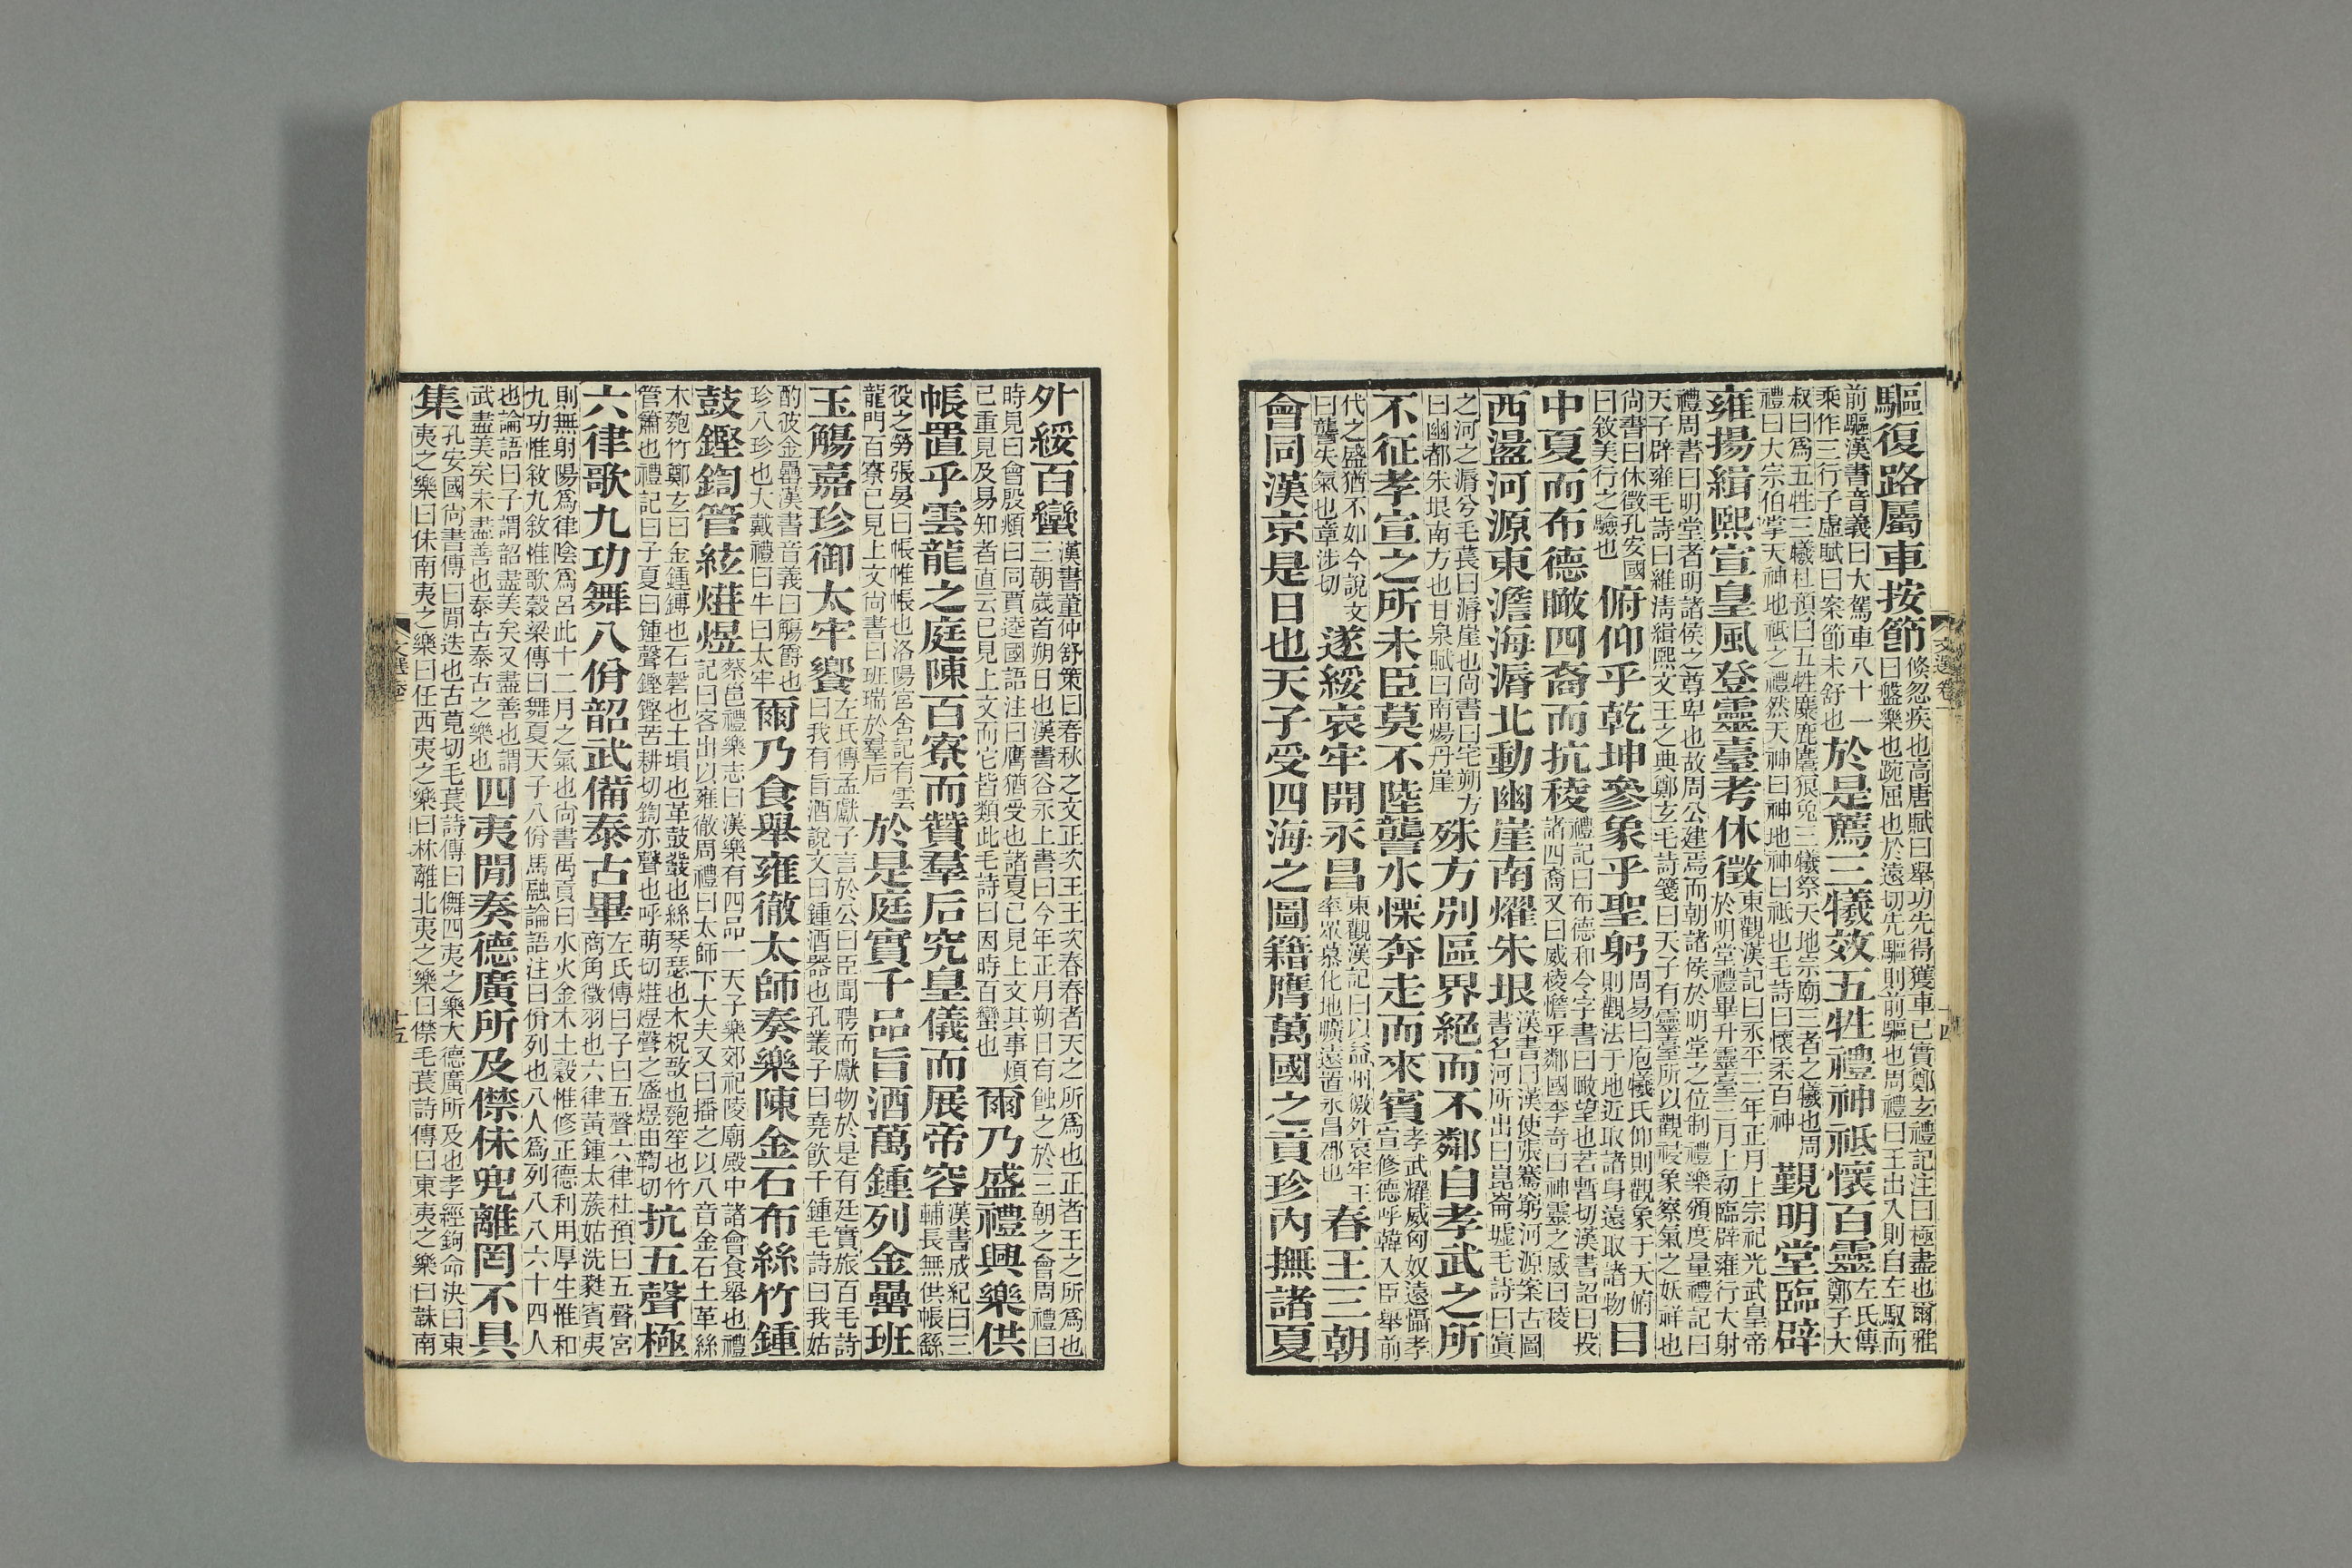 驅復路屬車按節倏忽疾也高唐賦曰舉功先得獲車已實鄭玄禮記注曰極盡也爾雅
曰盤樂也踠屈也於遠切先驅則前驅也周禮曰王出入則自左馭而
前驅漢書音義曰大駕車八十一
乘作三行子虛賦曰案節未舒也於是薦三犧效五牲禮神祇懷百靈左氏傳
鄭子大
叔曰爲五牲三犧杜預曰五牲麋鹿麏狼兔三犧祭天地宗廟三者之犧也周
禮曰大宗伯掌天神地祇之禮然天神曰神地神曰祇也毛詩曰懷柔百神覲明堂臨辟
雍揚緝熙宣皇風登靈臺考休徵東觀漢記曰永平三年正月上宗祀光武皇帝
於明堂禮畢升靈臺三月上初臨辟雍行大射
禮周書曰明堂者明諸侯之尊卑也故周公建焉而朝諸侯於明堂之位制禮樂頒度量禮記曰
天子辟雍毛詩曰維清緝熙文王之典鄭玄毛詩箋曰天子有靈臺所以觀祲象察氣之妖祥也
尚書曰休徵孔安國
曰敘美行之驗也俯仰乎乾坤參象乎聖躬周易曰庖犧氏仰則觀象于天俯
則觀法于地近取諸身遠取諸物目
中夏而布德瞰四裔而抗稜禮記曰布德和令字書曰瞰望也苦暫切漢書詔曰投
諸四裔又曰威稜憺乎鄰國李奇曰神靈之威曰稜
西盪河源東澹海漘北動幽崖南燿朱垠漢書曰漢使張騫窮河源案古圖
書名河所出曰崑崙墟毛詩曰寘
之河之漘兮毛萇曰漘崖也尚書曰宅朔方
曰幽都朱垠南方也甘泉賦曰南煬丹崖殊方別區界絕而不鄰自孝武之所
不征孝宣之所未臣莫不陸讋水慄奔走而來賓孝武耀威匈奴遠懾孝
宣修德呼韓入臣舉前
代之盛猶不如今說文
曰讋失氣也章涉切遂綏哀牢開永昌東觀漢記曰以益州徼外哀牢王
率眾慕化地曠遠置永昌郡也春王三朝
會同漢京是日也天子受四海之圖籍膺萬國之貢珍內撫諸夏
文選卷一
十四
外綏百蠻漢書董仲舒策曰春秋之文正次王王次春春者天之所爲也正者王之所爲也
三朝歲首朔日也漢書谷永上書曰今年正月朔日有蝕之於三朝之會周禮曰
時見曰會殷覜曰同賈逵國語注曰膺猶受也諸夏已見上文其事煩
已重見及易知者直云已見上文而它皆類此毛詩曰因時百蠻也爾乃盛禮興樂供
帳置乎雲龍之庭陳百寮而贊羣后究皇儀而展帝容漢書成紀曰三
輔長無供帳繇
役之勞張晏曰帳帷帳也洛陽宮舍記有雲
龍門百寮已見上文尚書曰班瑞於羣后於是庭實千品旨酒萬鍾列金罍班
玉觴嘉珍御太牢饗左氏傳孟獻子言於公曰臣聞聘而獻物於是有廷實旅百毛詩
曰我有旨酒說文曰鍾酒器也孔叢子曰堯飲千鍾毛詩曰我姑
酌彼金罍漢書音義曰觴爵也
珍八珍也大戴禮曰牛曰太牢爾乃食舉雍徹太師奏樂陳金石布絲竹鍾
鼓鏗鍧管絃燁煜蔡邕禮樂志曰漢樂有四品一天子樂郊祀陵廟殿中諸會食舉也禮
記曰客出以雍徹周禮曰太師下大夫又曰播之以八音金石土革絲
木匏竹鄭玄曰金鍾鎛也石磬也土塤也革鼓鼗也絲琴瑟也木柷敔也匏笙也竹
管簫也禮記曰子夏曰鍾聲鏗鏗苦耕切鍧亦聲也呼萌切燁煜聲之盛煜由鞫切抗五聲極
六律歌九功舞八佾韶武備泰古畢左氏傳曰子曰五聲六律杜預曰五聲宮
商角徵羽也六律黃鍾太蔟姑洗蕤賓夷
則無射陽爲律陰爲呂此十二月之氣也尚書禹貢曰水火金木土穀惟修正德利用厚生惟和
九功惟敘九敘惟歌穀梁傳曰舞夏天子八佾馬融論語注曰佾列也八人爲列八八六十四人
也論語曰子謂韶盡美矣又盡善也謂
武盡美矣未盡善也泰古泰古之樂也四夷閒奏德廣所及僸佅兜離罔不具
集孔安國尚書傳曰閒迭也古莧切毛萇詩傳曰儛四夷之樂大德廣所及也孝經鉤命決曰東
夷之樂曰佅南夷之樂曰任西夷之樂曰林離北夷之樂曰僸毛萇詩傳曰東夷之樂曰韎南
文選卷一
十五